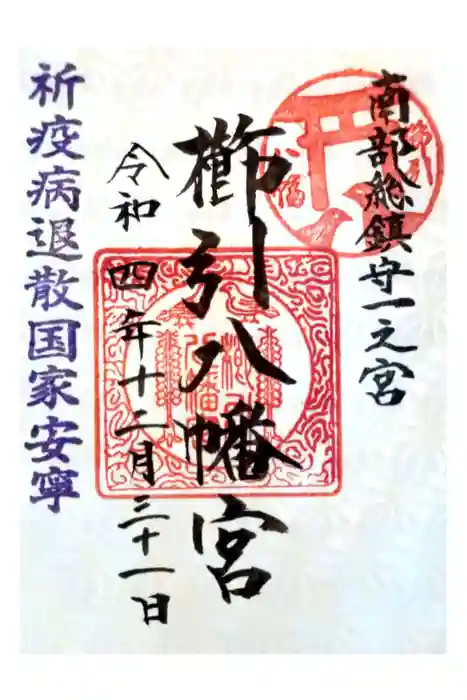 南部総鎮守一之宮
櫛引八幡宮
令和四年十二月三十一日
祈疫病退散国家安寧